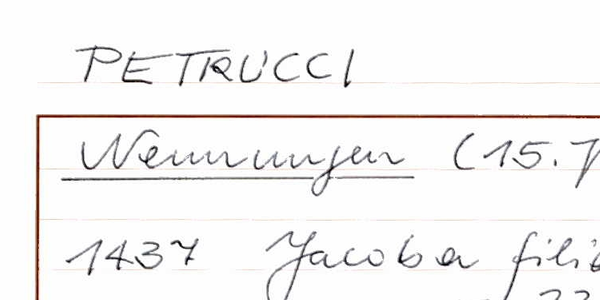 PETRUCCI
Nennungen (15.
1437 Jacoba fili